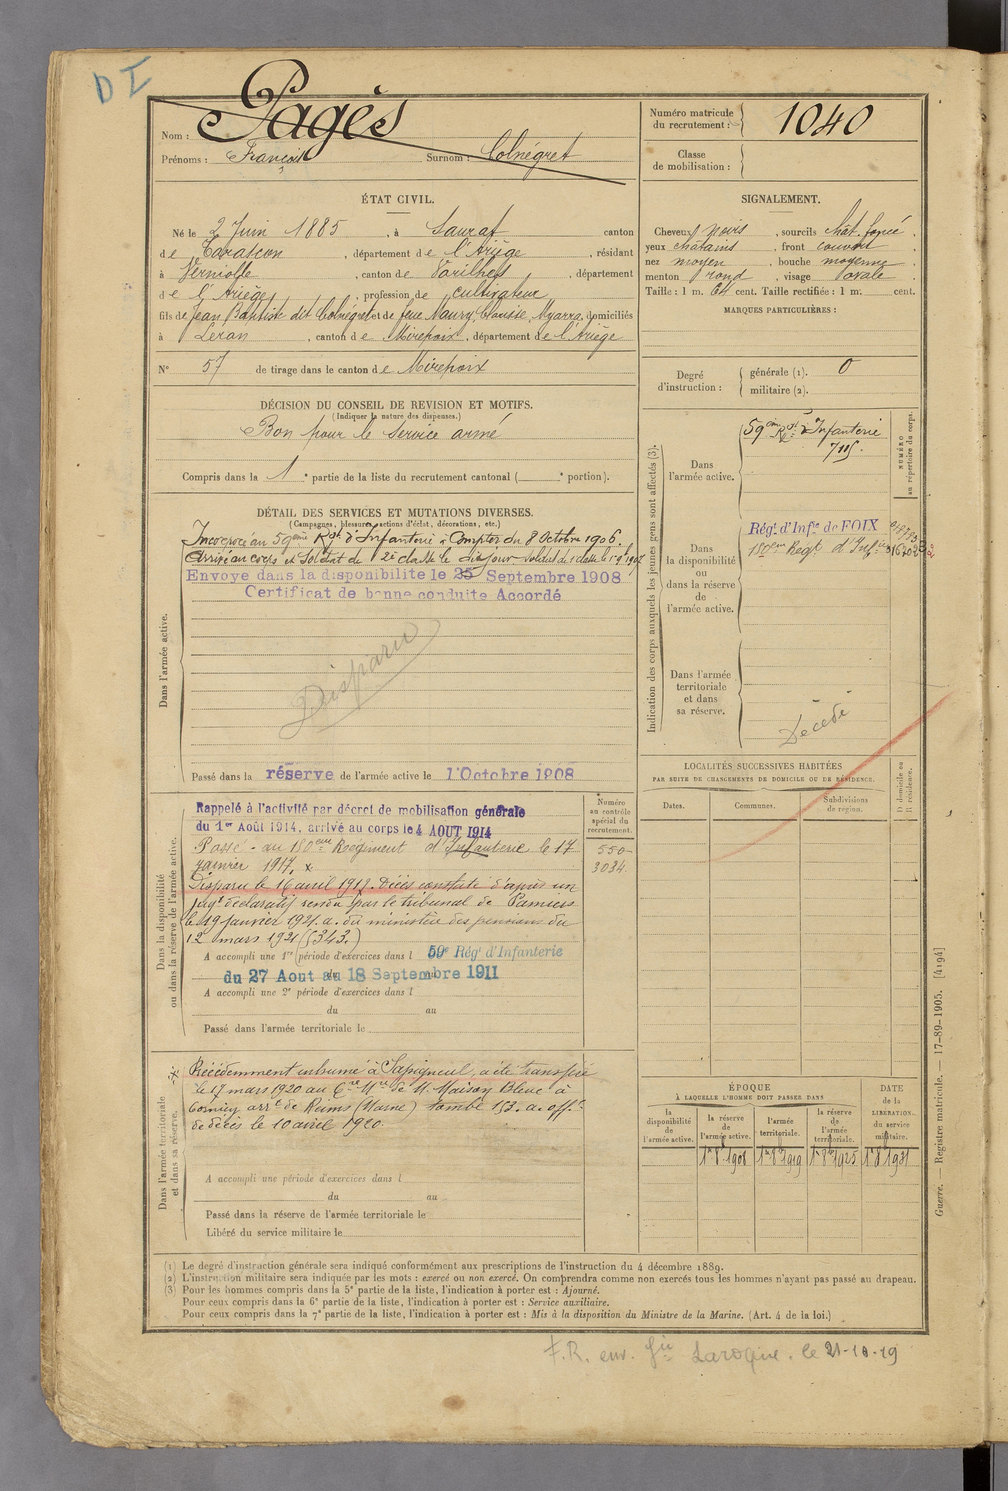 D I
Nom : Pagès
Prénoms : François Surnom : Colnégret
Numéro matricule
du recrutement : 1040
Classe
de mobilisation :
ÉTAT CIVIL.
Né le 2 Juin 1885, à Saurat canton
de Tarascon, département de l'Ariège, résidant
à Verniolle, canton de Varilhes, département
de l'Ariège, profession de cultivateur
fils de Jean Baptiste dit Colnégret et de feue Maury, Claustre, Myarra, domiciliés
à Léran, canton de Mirepoix, département de l'Ariège
N° 57 de tirage dans le canton de Mirepoix
SIGNALEMENT.
Cheveux noirs, sourcils chât. foncé,
yeux châtains, front couvert
nez moyen, bouche moyenne,
menton rond, visage ovale
Taille : 1 m. 64 cent. Taille rectifiée : 1 m. cent.
MARQUES PARTICULIÈRES :
Degré
d'instruction :
générale (1). 0
militaire (2).
DÉCISION DU CONSEIL DE REVISION ET MOTIFS.
(Indiquer la nature des dispenses.)
Bon pour le service armé
Compris dans la 1e partie de la liste du recrutement cantonal ( e portion).
DÉTAIL DES SERVICES ET MUTATIONS DIVERSES.
(Campagnes, blessures, actions d'éclat, décorations, etc.)
Dans l'armée active.
Incorporé au 59ème Régt d'Infanterie à compter du 8 Octobre 1906.
Arrivé au corps et Soldat de 2e classe le dit jour. Soldat de 1e classe le 19 1907
Envoyé dans la disponibilité le 25 Septembre 1908
Certificat de bonne conduite Accordé
Disparu
Passé dans la réserve de l'armée active le 1 Octobre 1908
Indication des corps auxquels les jeunes gens sont affectés (3).
NUMÉRO
au répertoire du corps.
Dans
l'armée active.
59ème Rgt d'Infanterie
7115.
Dans
la disponibilité
ou
dans la réserve
de
l'armée active.
Régt. d'Infie de FOIX
180ème Régt d'Infie
Dans l'armée
territoriale
et dans
sa réserve.
Décédé
LOCALITÉS SUCCESSIVES HABITÉES
PAR SUITE DE CHANGEMENTS DE DOMICILE OU DE RÉSIDENCE.
Dates. Communes. Subdivisions
de région. D domicile ou
R résidence.
Dans la disponibilité
ou dans la réserve de l'armée active.
Numéro
au contrôle
spécial du
recrutement.
550
3084
Rappelé à l'activité par décret de mobilisation générale
du 1er Août 1914, arrivé au corps le 4 AOUT 1914
Passé au 180eme Régiment d'Infanterie le 17
janvier 1917. x
Disparu le 16 avril 1917. Décès constaté d'après un
jugt déclaratif rendu par le tribunal de Pamiers
le 19 janvier 1921. a. du ministère des pensions du
12 mars 1921 (S343.)
A accompli une 1re période d'exercices dans l 59e Rég. d'Infanterie
du 27 Aout au 18 Septembre 1911
A accompli une 2e période d'exercices dans l
du au
Passé dans l'armée territoriale le
Dans l'armée territoriale
et dans sa réserve.
x Précédemment inhumé à Sapigneul, a été transféré
le 17 mars 1920 au Cre Mre de M. Maison Bleue à
Cormicy arrt de Reims (Marne) tombe 153. a. off.el
de décès le 10 avril 1920.
A accompli une période d'exercices dans l
du au
Passé dans la réserve de l'armée territoriale le
Libéré du service militaire le
ÉPOQUE
À LAQUELLE L'HOMME DOIT PASSER DANS
DATE
de la
LIBÉRATION.
du service
militaire.
la
disponibilité
de
l'armée active.
la réserve
de
l'armée active.
l'armée
territoriale.
la réserve
de
l'armée
territoriale.
1er 8bre 1908 1er 8bre 1919 1er 8bre 1925 1er 8bre 1931
Guerre. — Registre matricule. — 17-89-1905. [4194]
(1) Le degré d'instruction générale sera indiqué conformément aux prescriptions de l'instruction du 4 décembre 1889.
(2) L'instruction militaire sera indiquée par les mots : exercé ou non exercé. On comprendra comme non exercés tous les hommes n'ayant pas passé au drapeau.
(3) Pour les hommes compris dans la 5e partie de la liste, l'indication à porter est : Ajourné.
Pour ceux compris dans la 6e partie de la liste, l'indication à porter est : Service auxiliaire.
Pour ceux compris dans la 7e partie de la liste, l'indication à porter est : Mis à la disposition du Ministre de la Marine. (Art. 4 de la loi.)
F.R. env. Gie Laroque. le 21-10-19